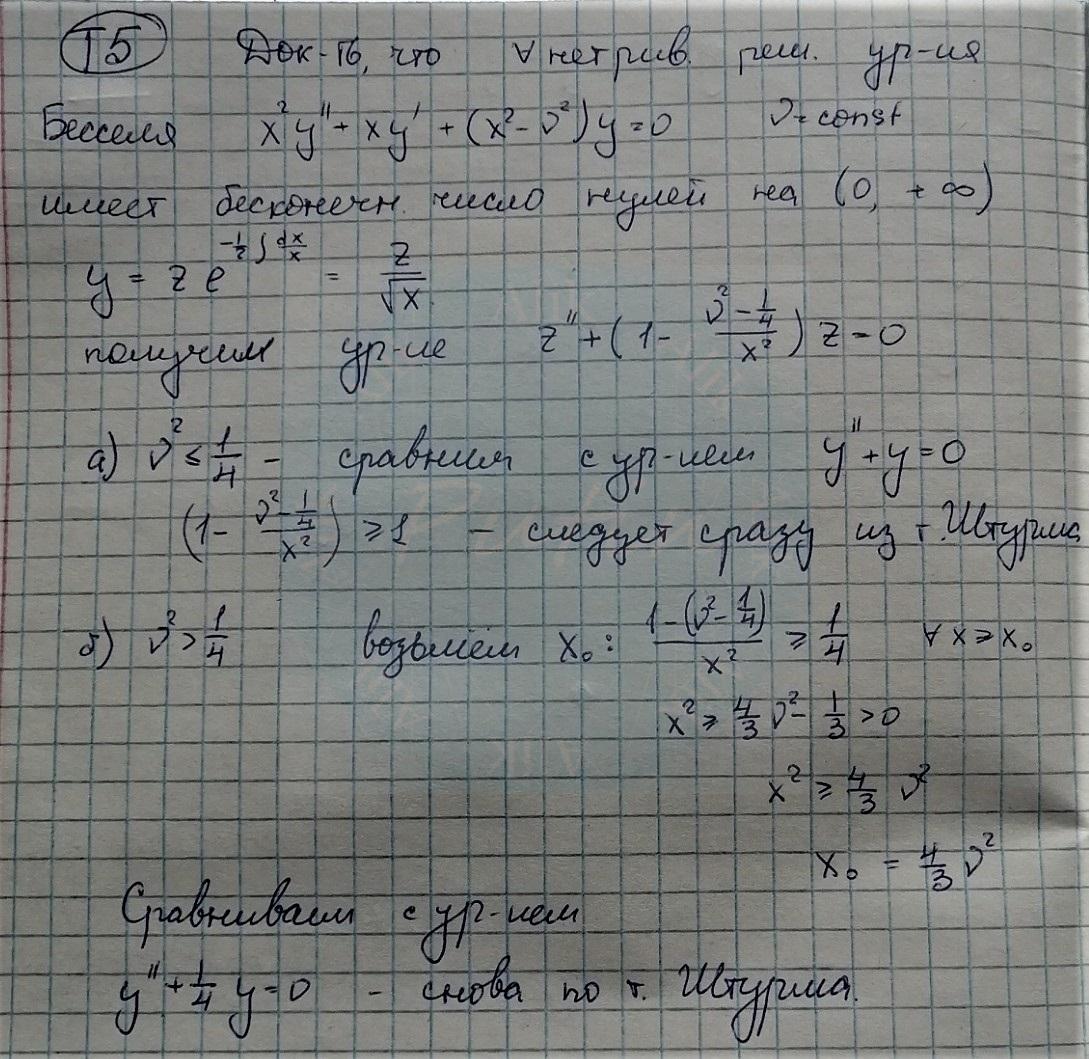 T5 Док-ть, что ∀ нетрив. реш. ур-ия
Бесселя x²y'' + xy' + (x² - ν²)y = 0 ν = const
имеет бесконечн. число нулей на (0, +∞)
y = z e^{-\frac{1}{2}∫\frac{dx}{x}} = \frac{z}{\sqrt{x}}
получим ур-ие z'' + (1 - \frac{ν² - \frac{1}{4}}{x²}) z = 0
а) ν² ≤ \frac{1}{4} - сравним с ур-ием y'' + y = 0
(1 - \frac{ν² - \frac{1}{4}}{x²}) ≥ 1 - следует сразу из т. Штурма
б) ν² > \frac{1}{4} возьмём x₀: \frac{1 - (ν² - \frac{1}{4})}{x²} ≥ \frac{1}{4} ∀ x ≥ x₀
x² ≥ \frac{4}{3} ν² - \frac{1}{3} > 0
x² ≥ \frac{4}{3} ν²
x₀ = \frac{4}{3} ν²
Сравниваем с ур-ием
y'' + \frac{1}{4} y = 0 - снова по т. Штурма.